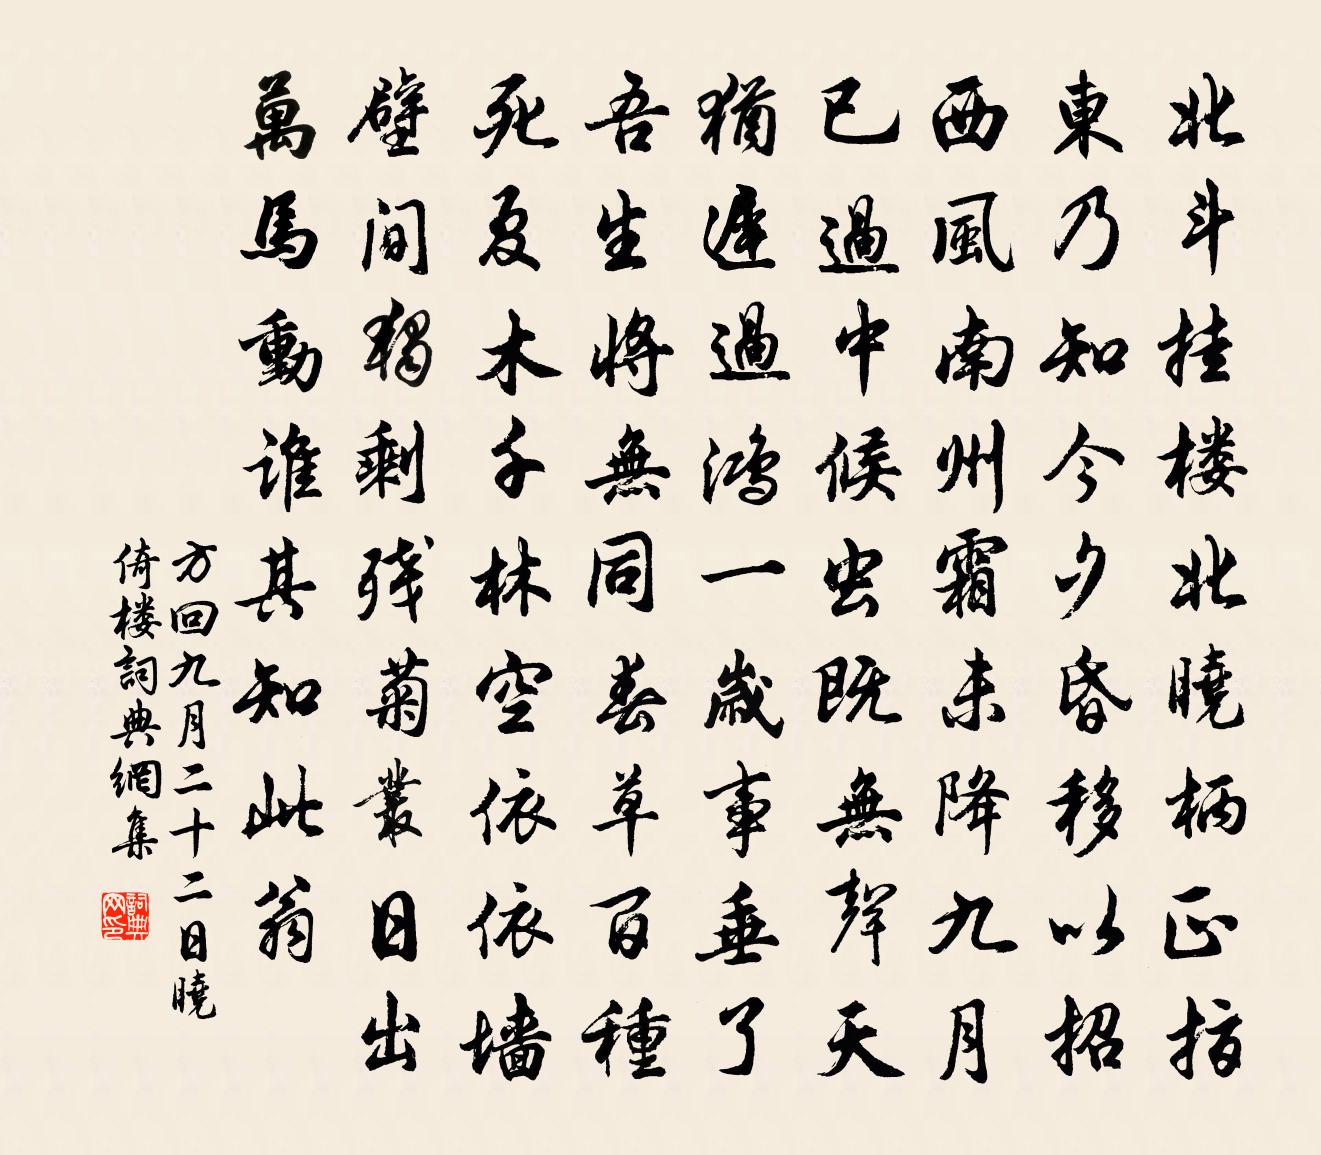 北斗挂楼北曉柄正指
東乃知今夕昏移以招
西風南州霜未降九月
已過中候虫既無聲天
猶遲過鴻一歲事垂了
吾生将無同春草百種
死夏木千林空依依墙
壁间獨剩残菊叢日出
萬馬動谁其知此翁
方回九月二十二日曉
倚楼詞典網集
詞典网印